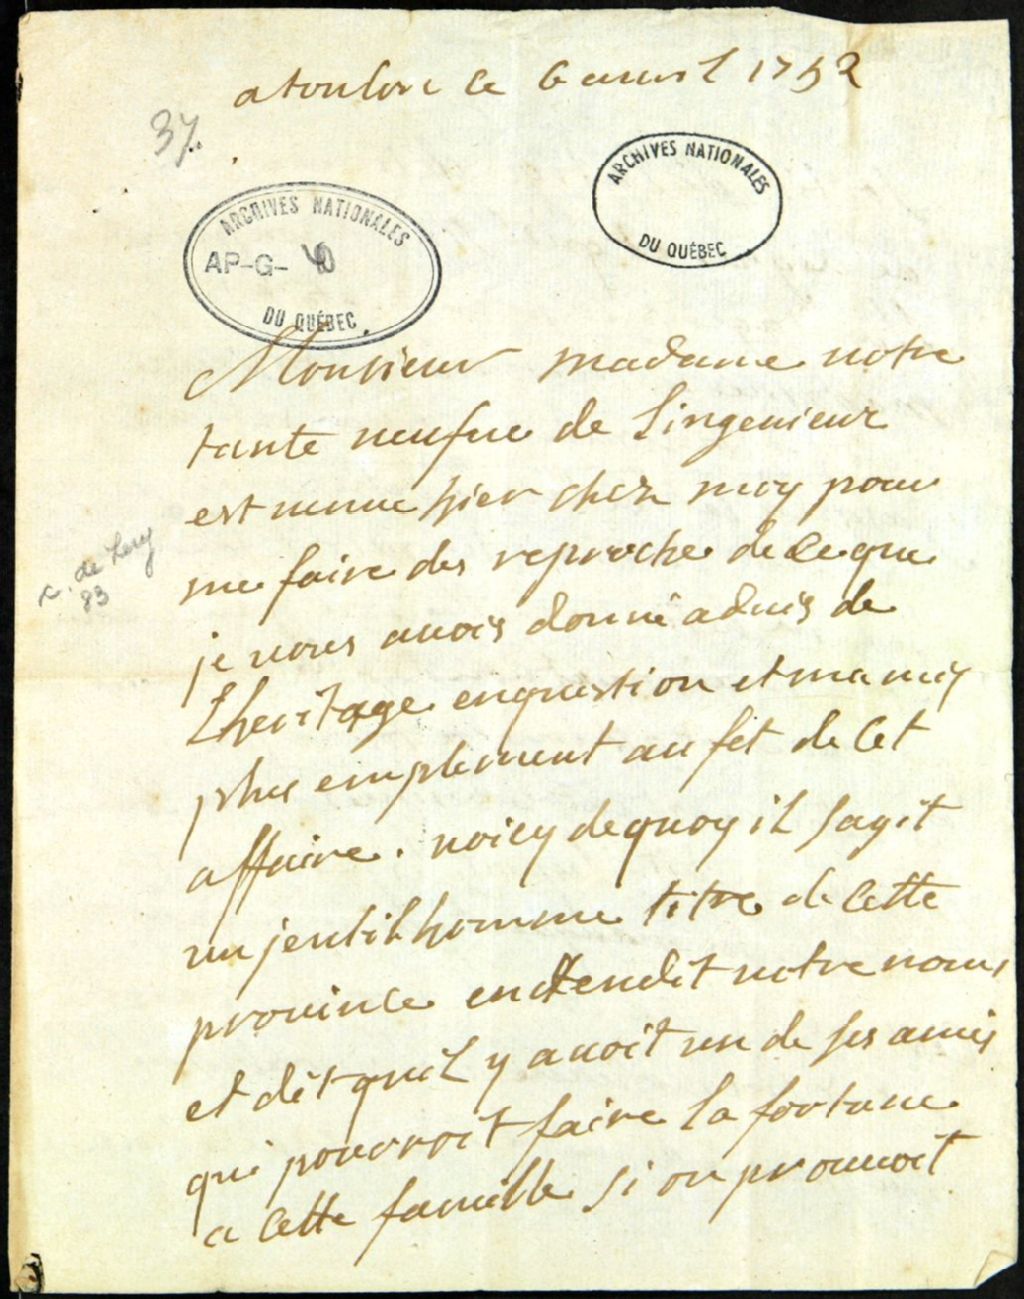 a toulon ce 6 auril 1752
37.
ARCHIVES NATIONALES
DU QUÉBEC
ARCHIVES NATIONALES
AP-G-40
DU QUÉBEC
Monsieur madame notre
tante neufue de Lingenieur
est venue hier chez moy pour
me faire des reproche de ce que
je vous auois donné aduis de
Lheritage en question et ma mis
plus emplement au fet de Cet
affaire. voicy de quoy il sagit
un jentilhomme titre de Cette
prouince entendit notre nom,
et dit quil y auoit un de ses amis
qui pourroit faire la fortune
a Cette famille si on prouuoit
de Lery
83